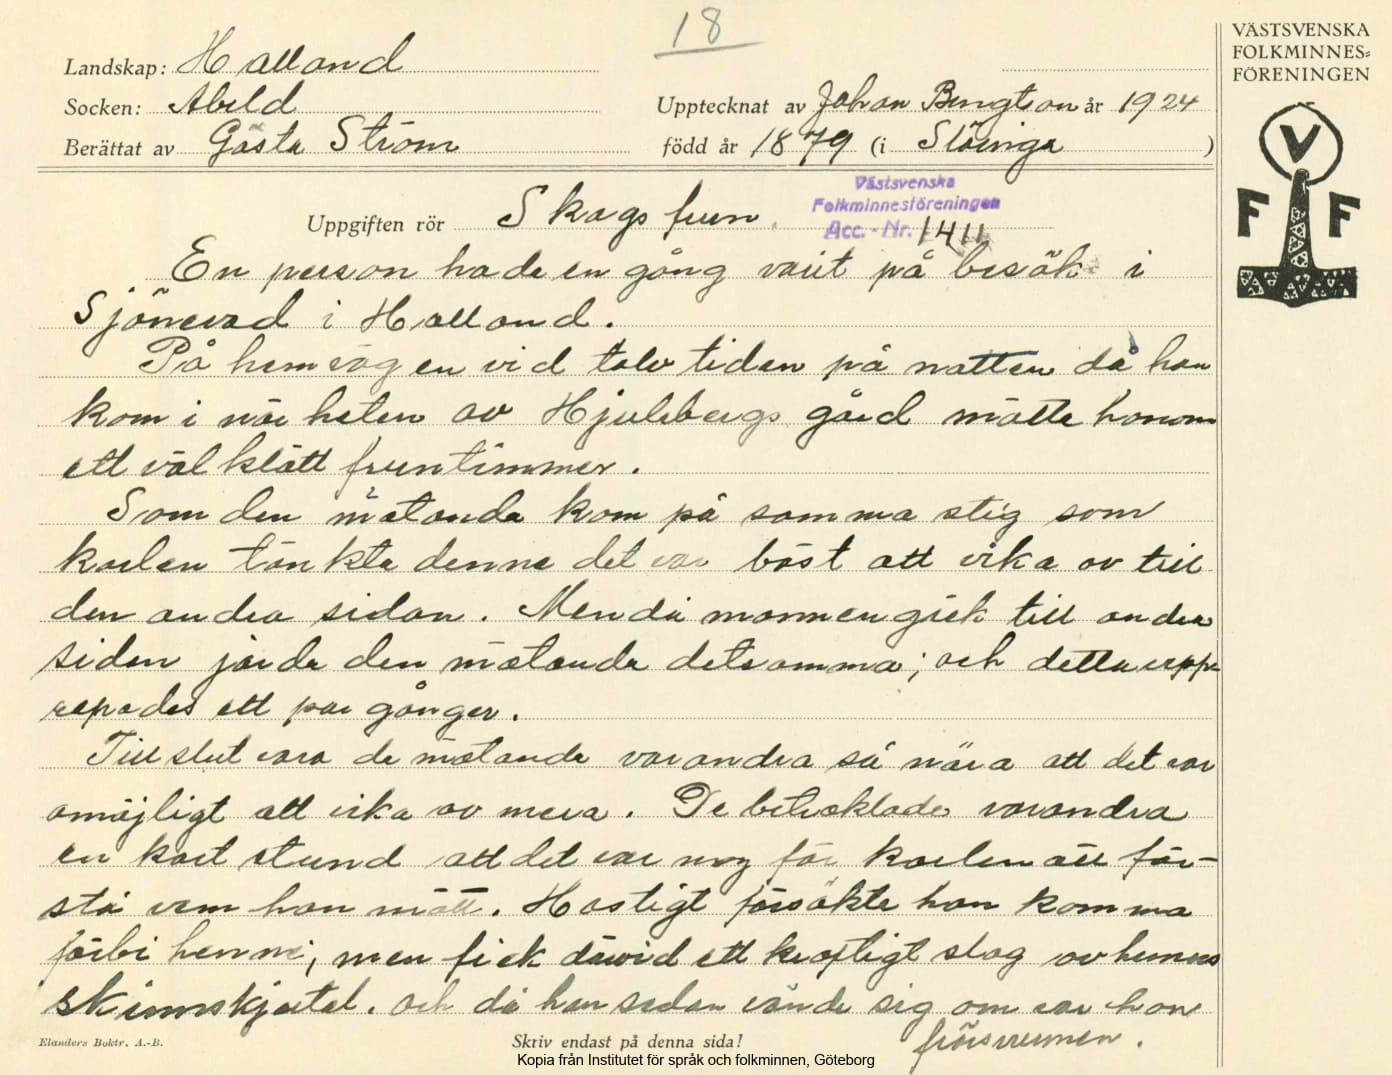 18
VÄSTSVENSKA
FOLKMINNES=
FÖRENINGEN
V
F F
Landskap: Halland
Socken: Abild
Berättat av Gösta Ström
Upptecknat av Johan Bengtson år 1924
född år 1879 (i Slöinge )
Uppgiften rör Skogsfrun
Västsvenska
Folkminnesföreningen
Acc. - Nr. 1411
En person hade en gång varit på besök i
Sjönevad i Halland.
På hemvägen vid tolv tiden på natten då han
kom i närheten av Hjulebergs gård mötte honom
ett välklätt fruntimmer.
Som den mötande kom på samma stig som
karlen tänkte denne det var bäst att vika av till
den andra sidan. Men då mannen gick till andra
sidan jorde den mötande detsamma; och detta uppe
repades ett par gånger.
Till slut vara de mötande varandra så nära att det var
omöjligt att vika av mera. De betraktade varandra
en kort stund att det var nog för karlen att för-
stå vem han mött. Hastigt försökte han komma
förbi henne, men fick därvid ett kraftigt slag av hennes
skinnskjortel. och då han sedan vände sig om var hon
försvunnen.
Elanders Boktr. A.-B.
Skriv endast på denna sida!
Kopia från Institutet för språk och folkminnen, Göteborg